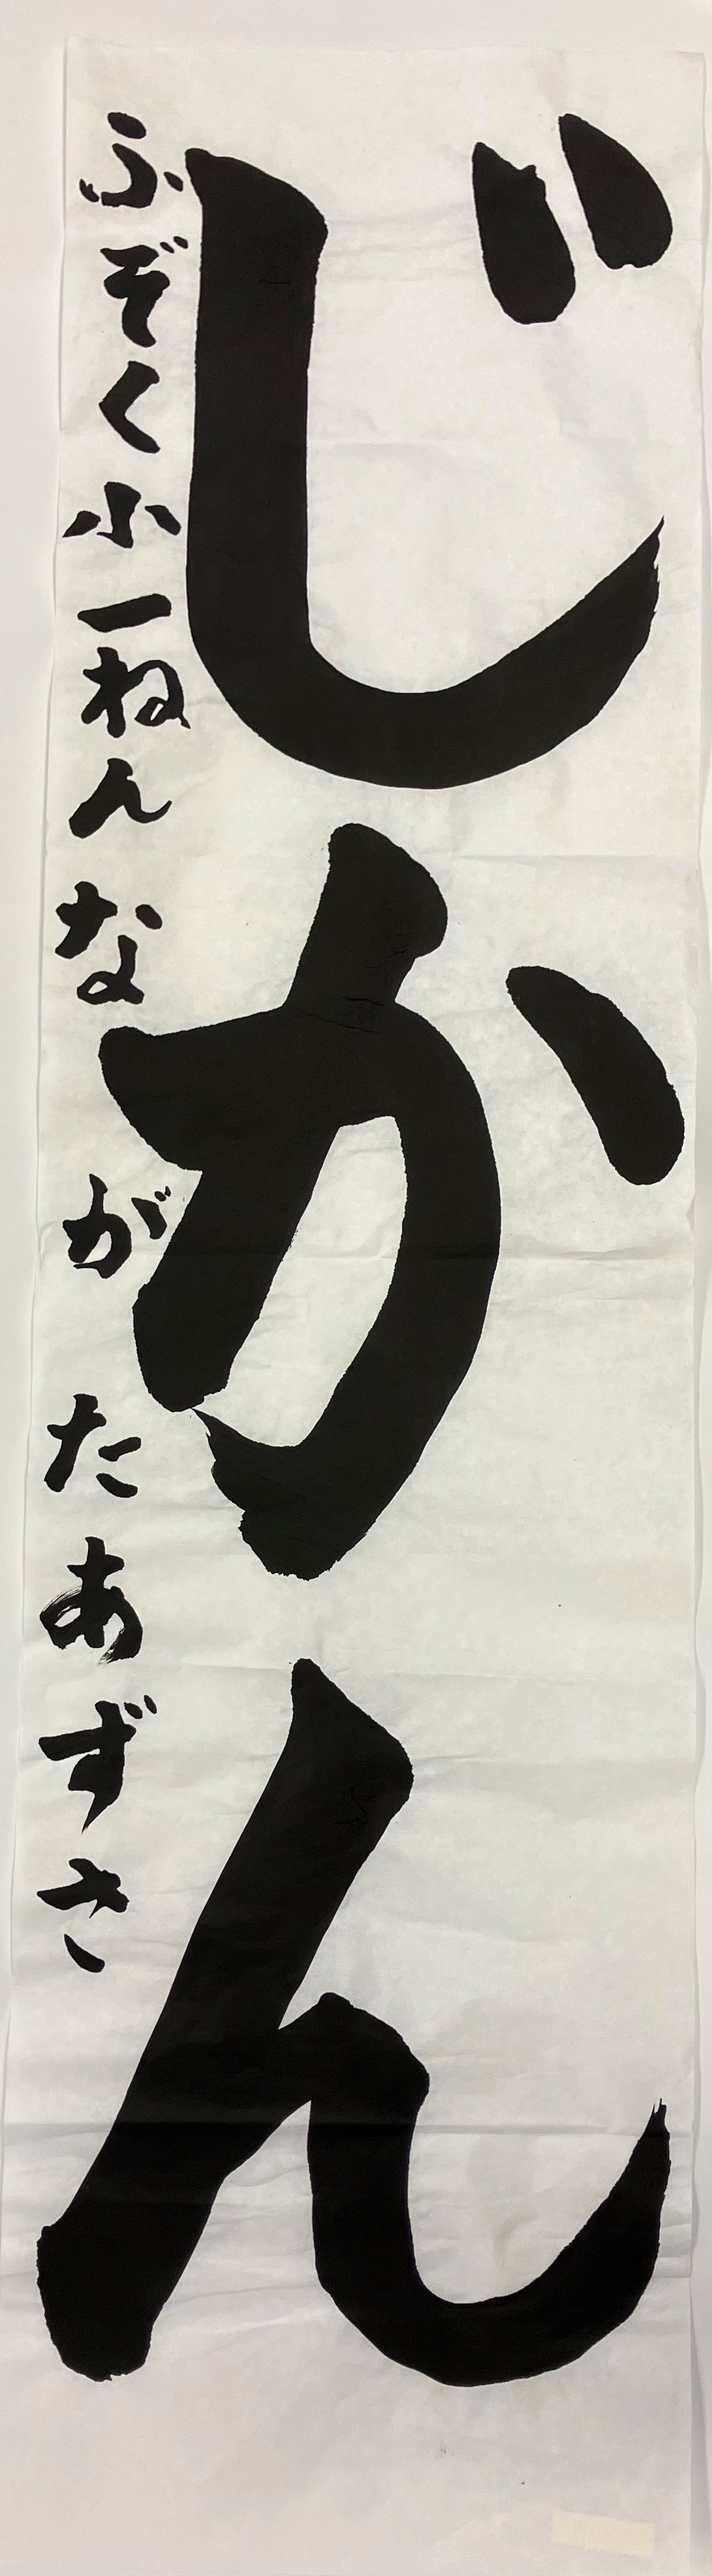 じかん
ふぞく小一ねんながたあずさ